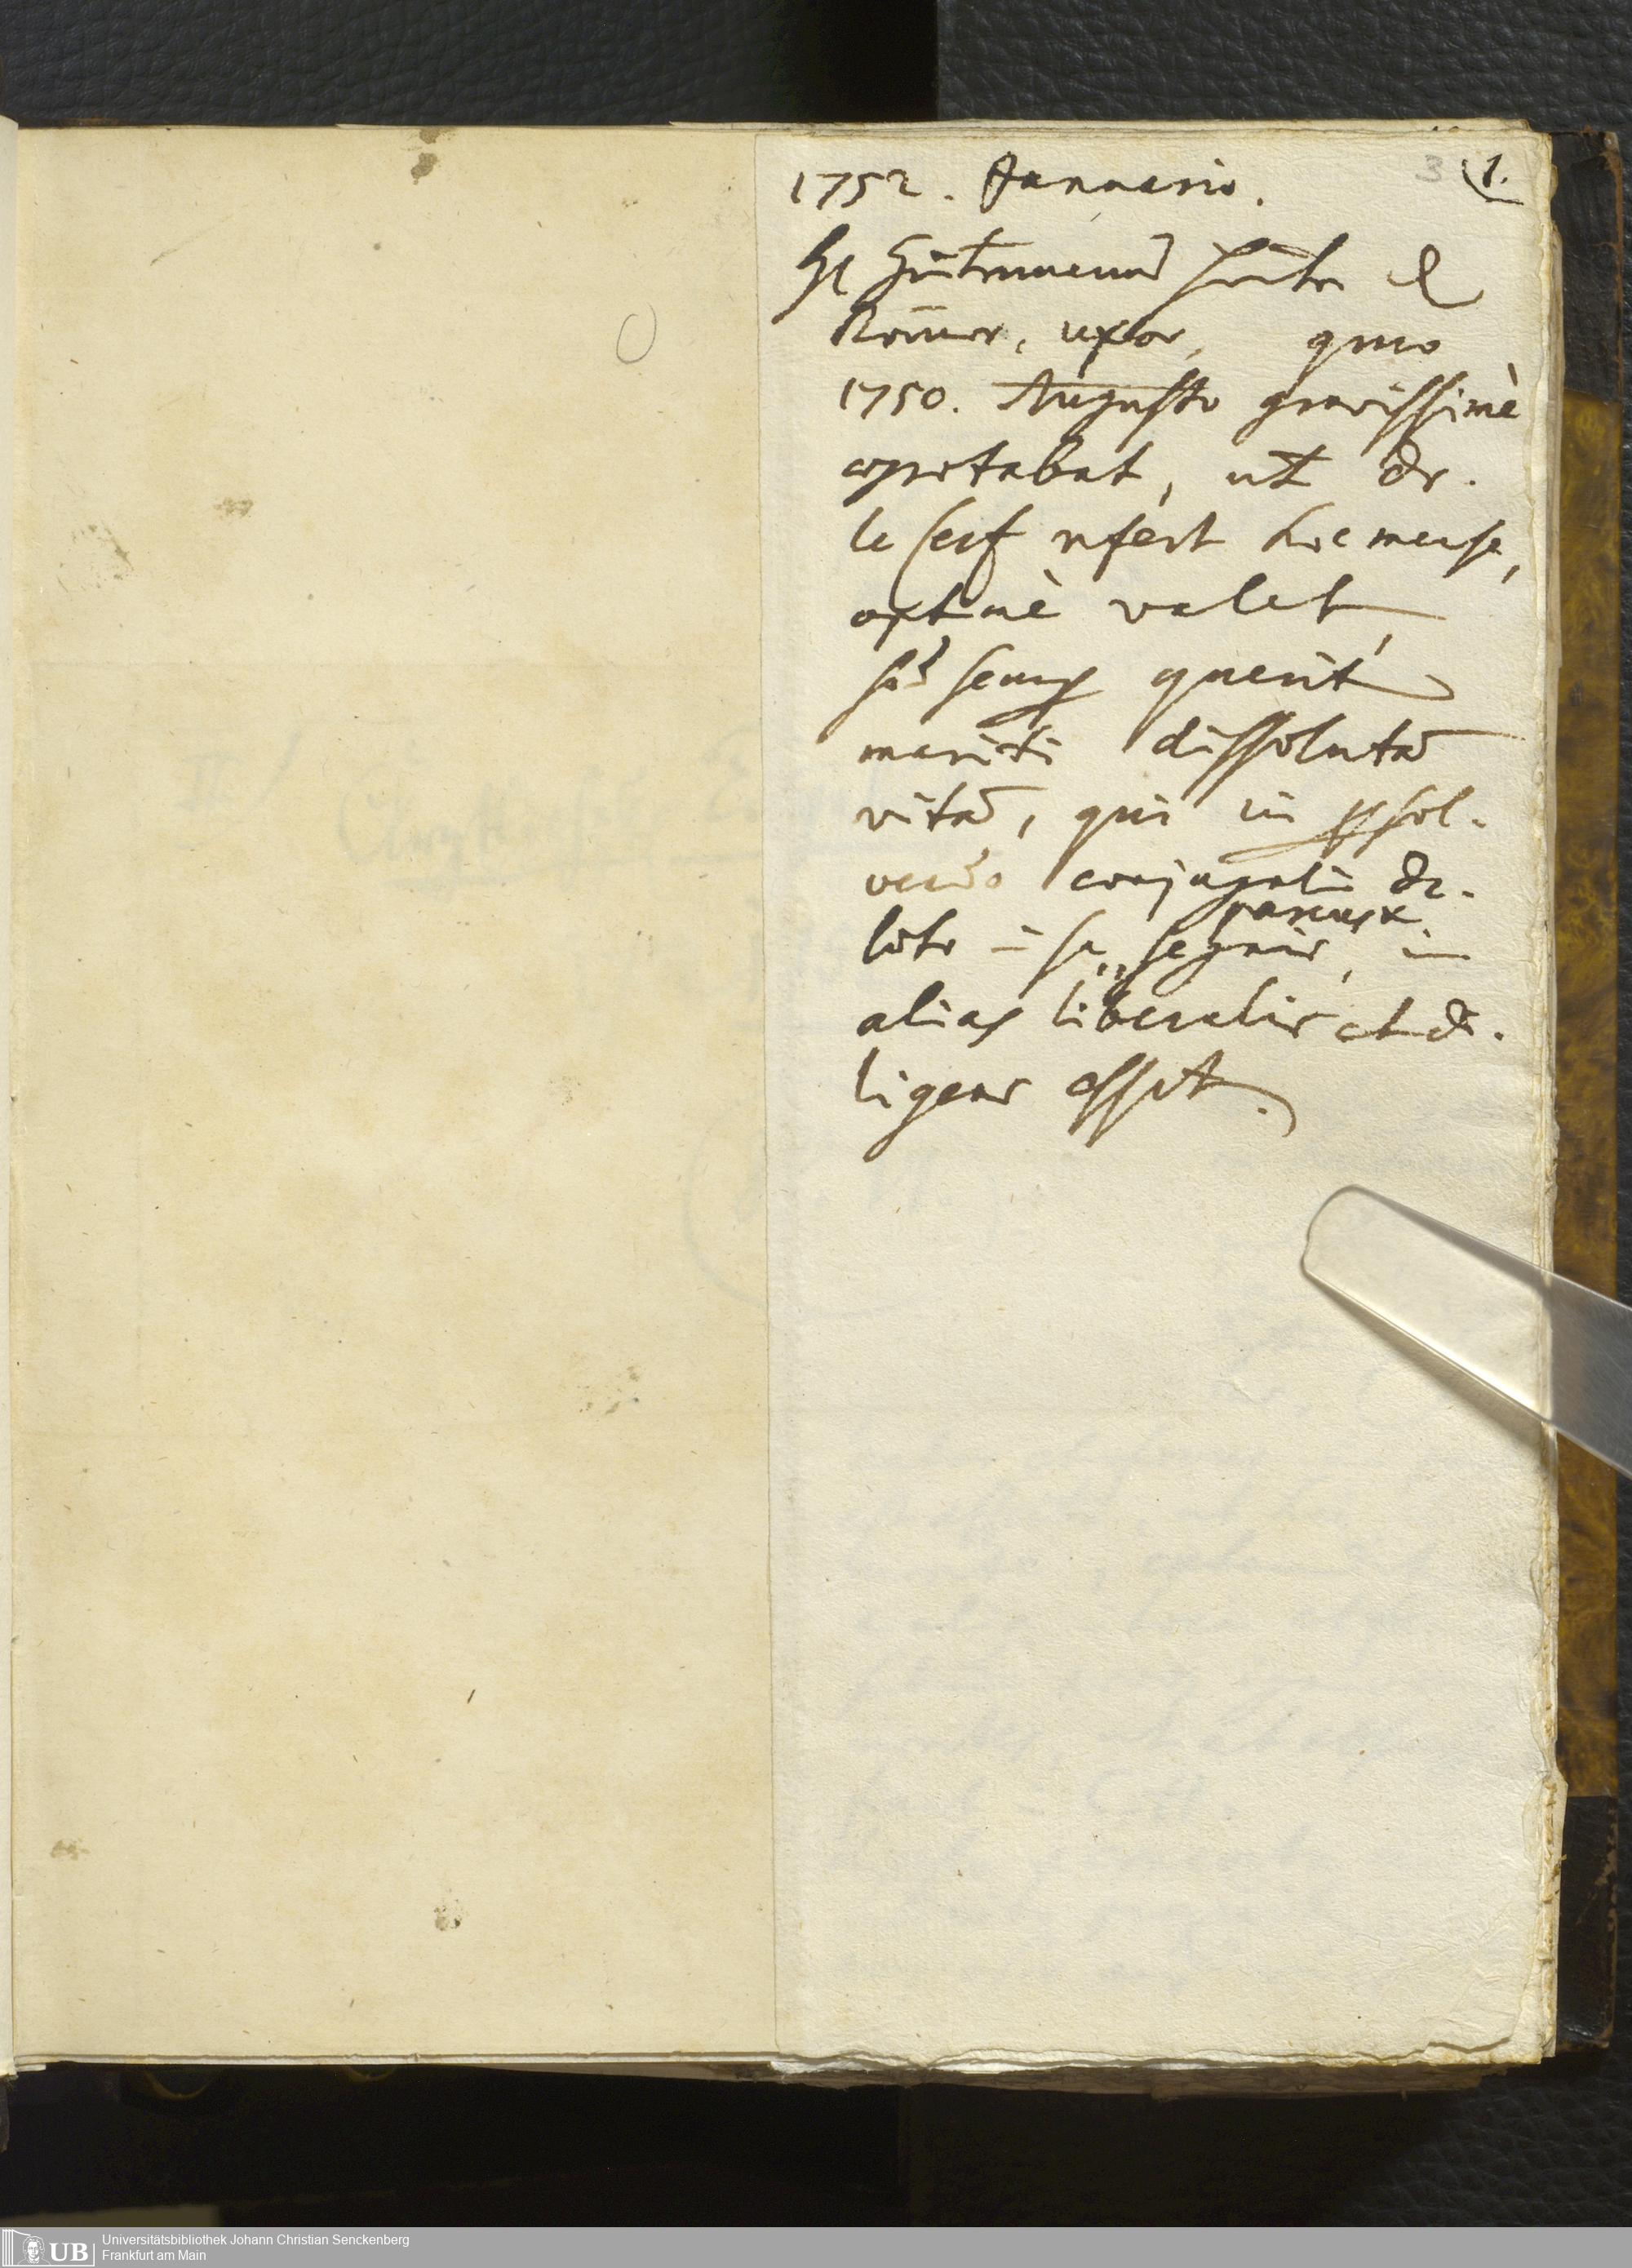 3 1.
1752. Januario.
Römer, uxor, quae
1750. Augusto gravissimè
aegrotabat, ut Dr.
le Cerf refert hoc mense,
optimè valet,
sed semp querit
mariti dissolutā
vitā, qui in psol-
vendo conjugali de-
bito in se segnis, parcusx in
alias liberalis et di-
ligens esset.
UB
Universitätsbibliothek Johann Christian Senckenberg
Frankfurt am Main